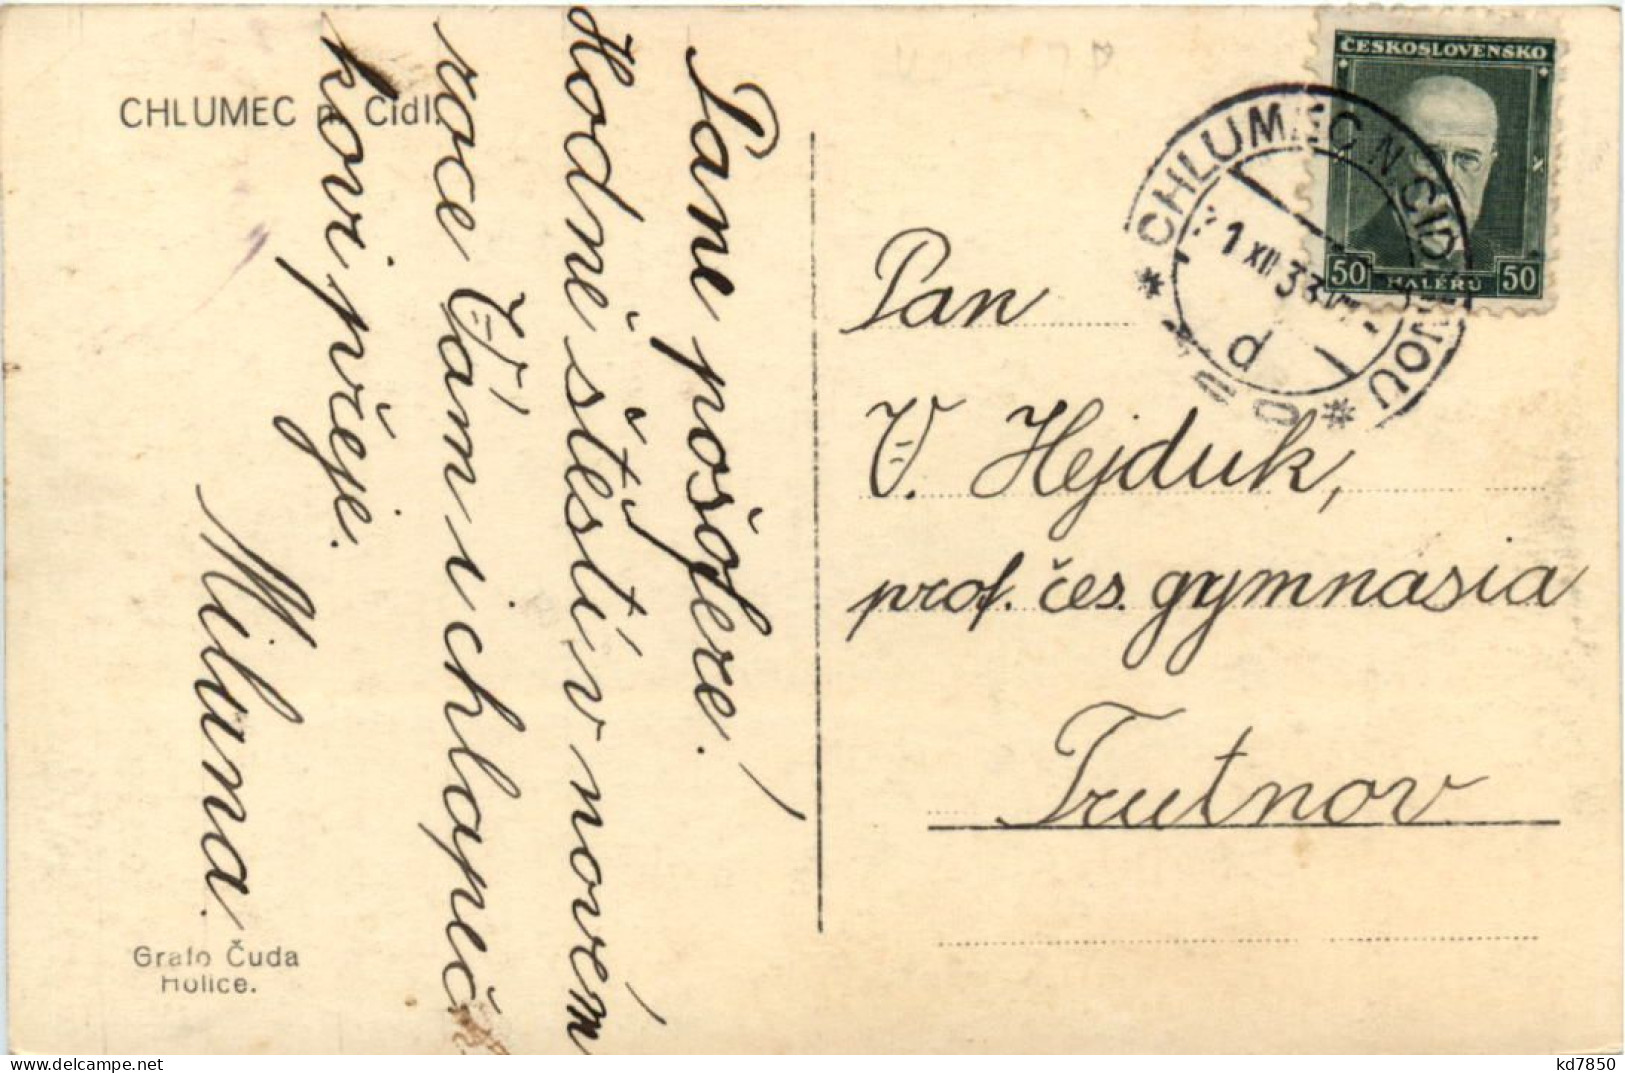 CHLUMEC n. Cidl.
Pane pošgere!
Hodně štěstí v novém
roce Vám i chlapeč
kovi přeje.
Miluna.
Grafo Čuda
Holice.
ČESKOSLOVENSKO
50 HALÉRŮ 50
CHLUMEC N. CIDLINOU
1 XII 33
d
Pan
V. Hejduk,
prof. čes. gymnasia
Trutnov
kd7850